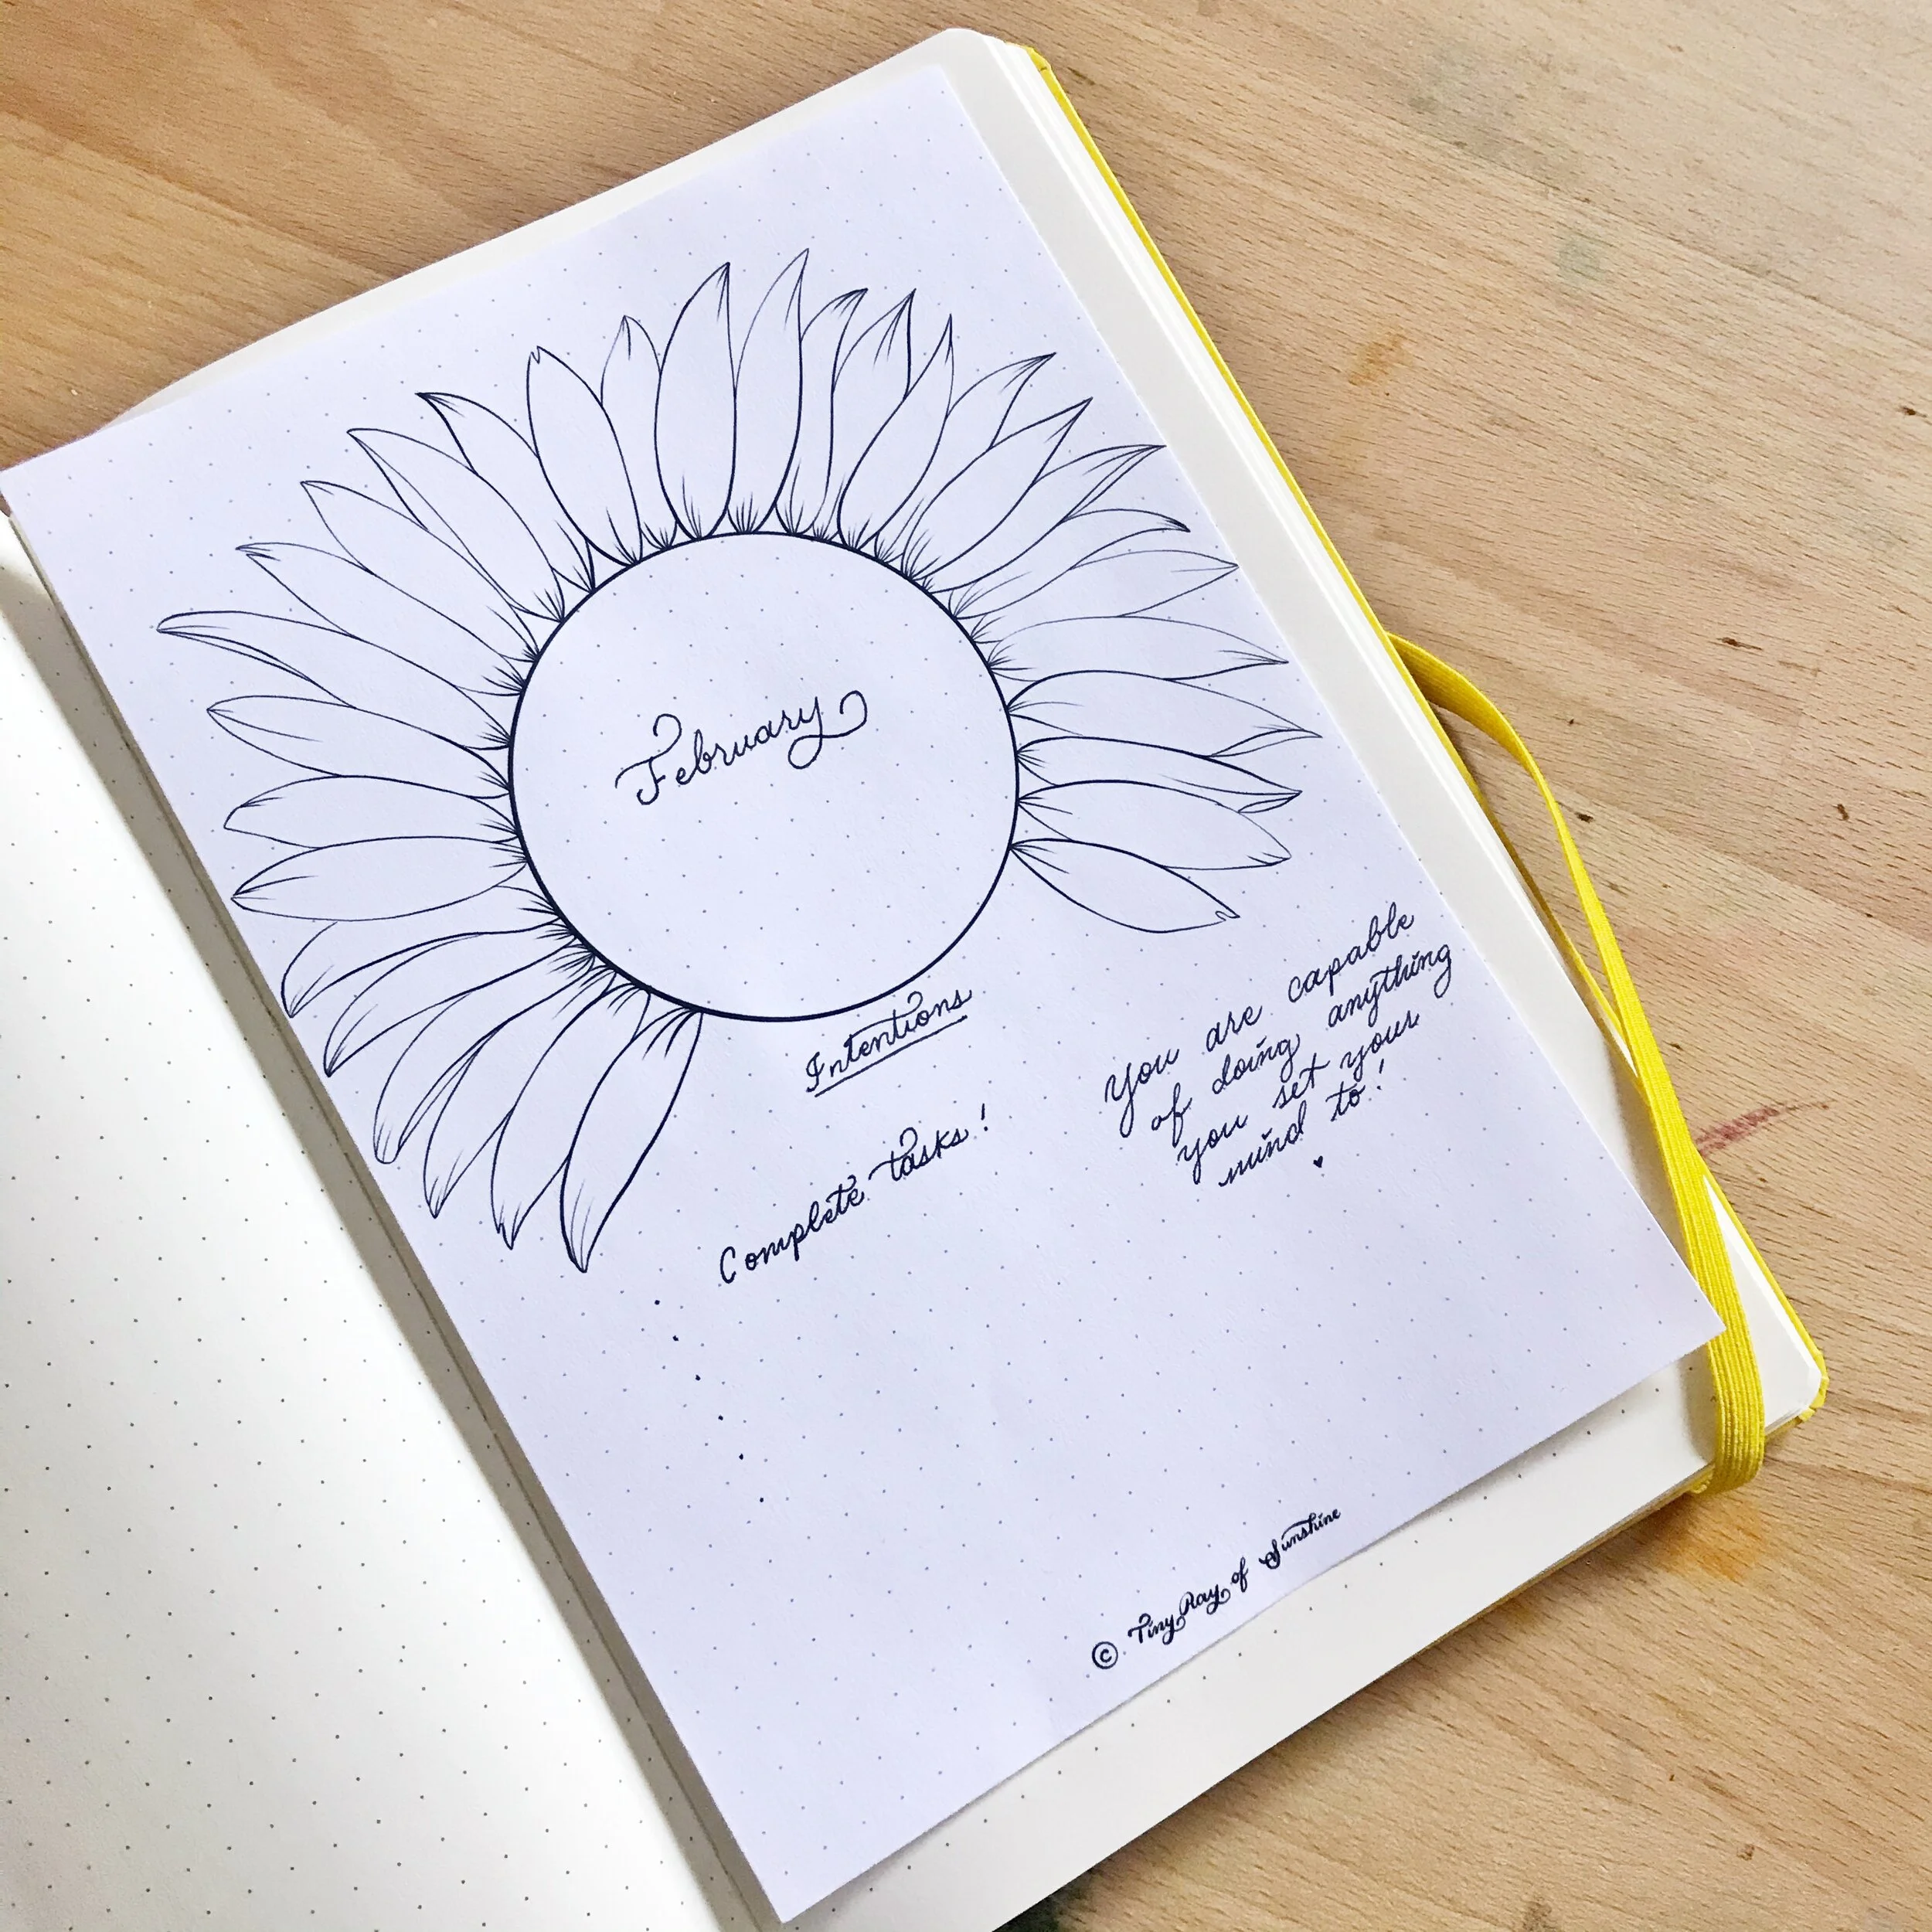 February
Intentions
Complete tasks!
You are capable
of doing anything
you set your
mind to!
© Tiny Ray of Sunshine